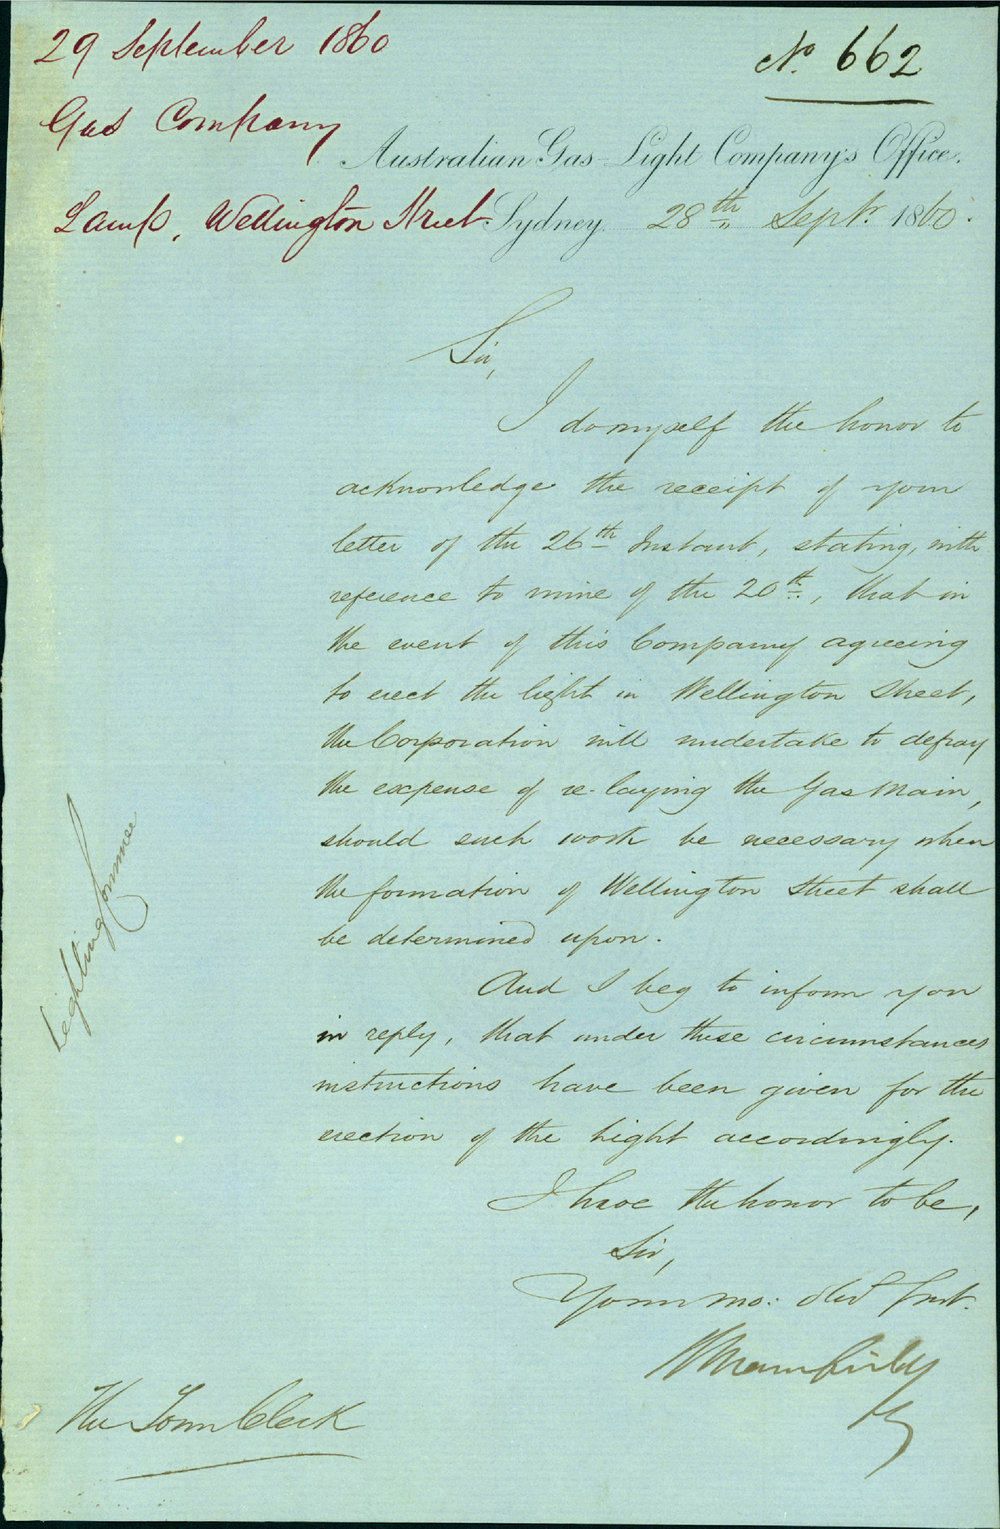 29 September 1860
No. 662
Gas Company
Australian Gas-Light Company's Office.
Lamp, Wellington Street
Sydney. 28th Sept. 1860.
Sir,
I do myself the honor to
acknowledge the receipt of your
letter of the 26th Instant, stating, with
reference to mine of the 20th, that in
the event of this Company agreeing
to erect the light in Wellington Street,
the Corporation will undertake to defray
the expense of re-laying the Gas Main,
should such work be necessary when
the formation of Wellington Street shall
be determined upon.
Lighting Commee
And I beg to inform you
in reply, that under these circumstances
instructions have been given for the
erection of the Light accordingly.
I have the honor to be,
Sir,
Your mo: obt Servt.
Sy
The Town Clerk